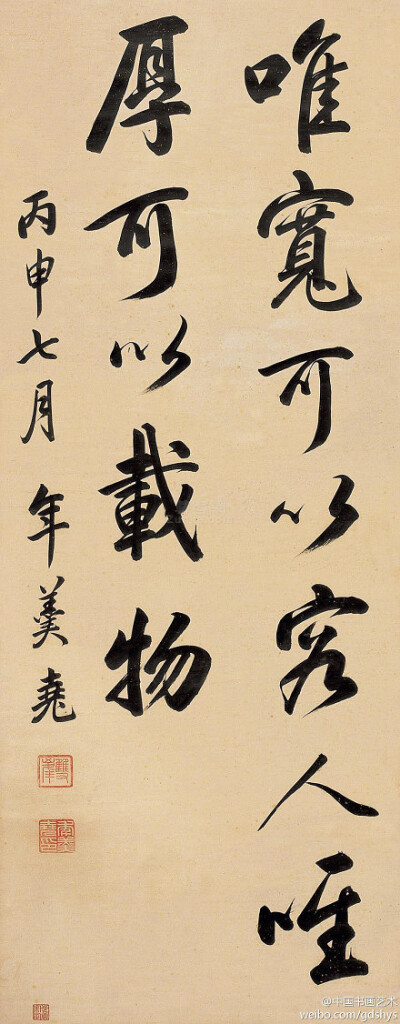 唯寬可以容人唯
厚可以載物
丙申七月 年羹堯
@中国书画艺术
weibo.com/gdshys